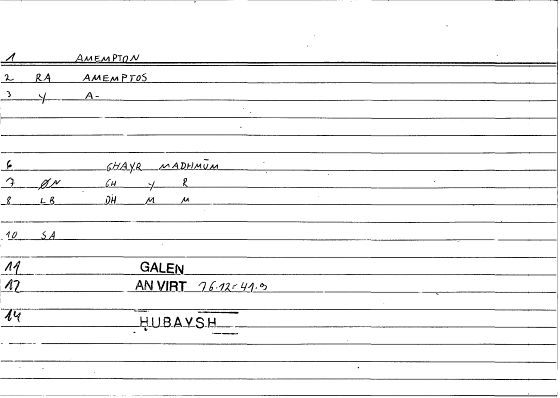 1 AMEMPTON
2 RA AMEMPTOS
3 Y A-
6 GHAYR MADHMŪM
7 ØN GH Y R
8 LB DH M M
10 SA
11 GALEN
12 AN VIRT 76.12-41.9
14 ḤUBAYSH